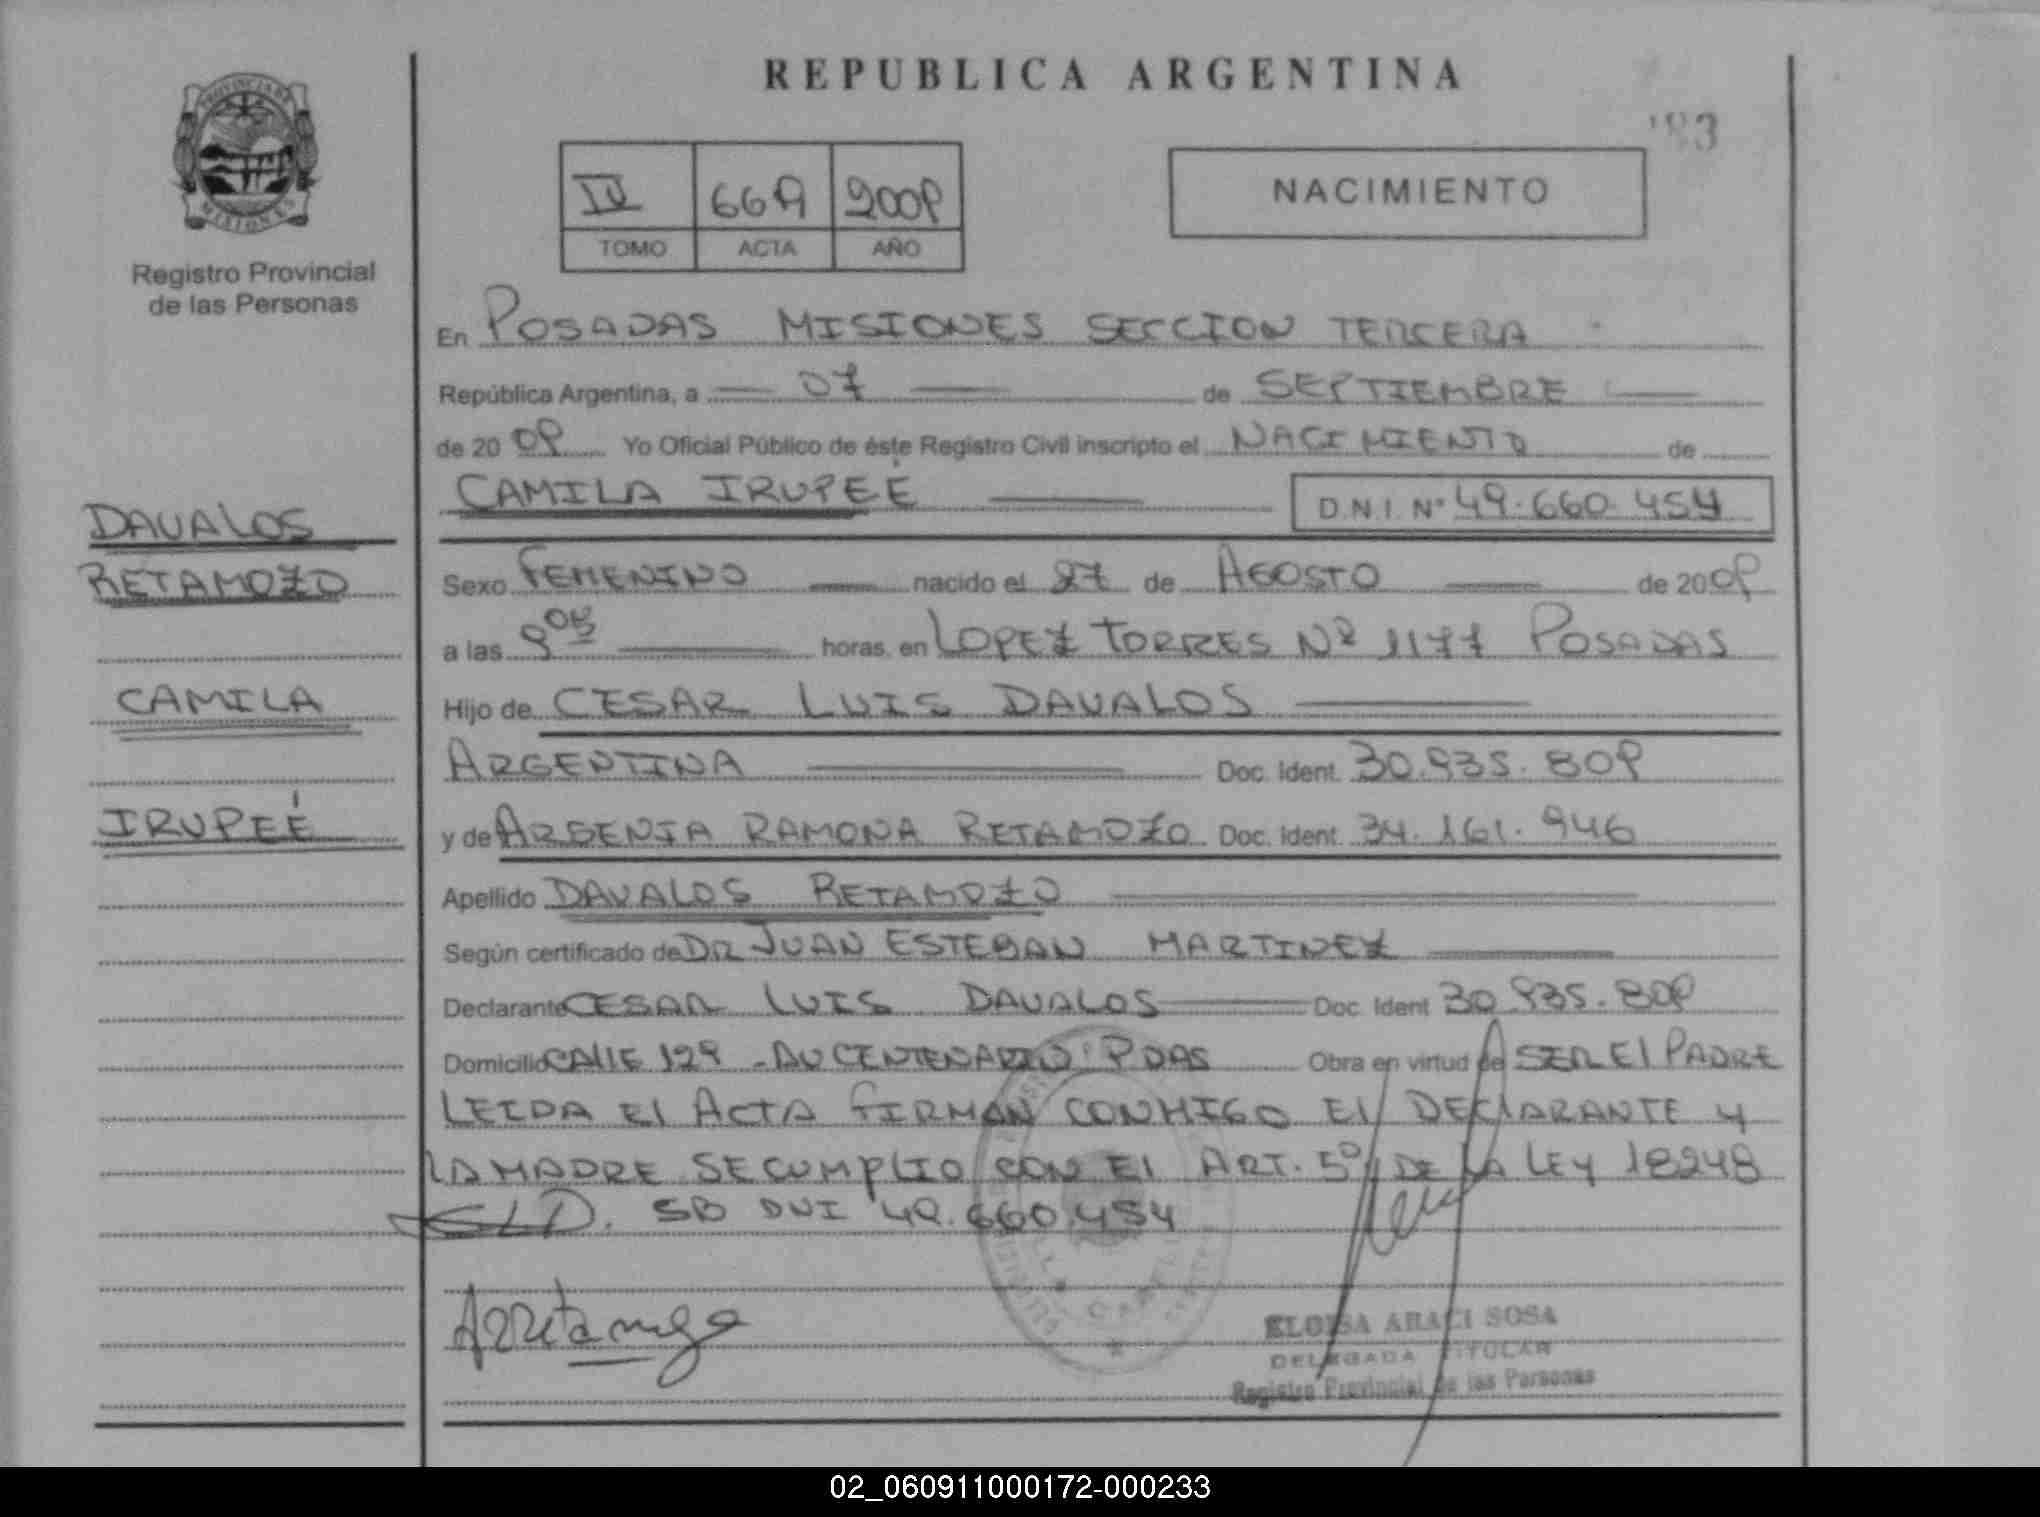 REPUBLICA ARGENTINA
PROVINCIA DE
MISIONES
Registro Provincial
de las Personas
IV 669 2009
TOMO ACTA AÑO
NACIMIENTO
En POSADAS MISIONES SECCION TERCERA
República Argentina, a 07 de SEPTIEMBRE
de 2009 Yo Oficial Público de éste Registro Civil inscripto el NACIMIENTO de
CAMILA IRUPEÉ D.N.I. Nº 49.660.454
DAVALOS
RETAMOZO
CAMILA
IRUPEÉ
Sexo FEMENINO nacido el 27 de AGOSTO de 2009
a las 9 05 horas, en LOPEZ TORRES Nº 1177 POSADAS
Hijo de CESAR LUIS DAVALOS
ARGENTINA Doc. Ident. 30.935.809
y de ARGENIA RAMONA RETAMOZO Doc. Ident. 34.161.946
Apellido DAVALOS RETAMOZO
Según certificado de DR JUAN ESTEBAN MARTINEZ
Declarante CESAR LUIS DAVALOS Doc. Ident 30.935.809
Domicilio CALLE 129 - AV CENTENARIO PDAS Obra en virtud de SER El PADRE
LEIDA El ACTA FIRMAN CONMIGO El DEClARANTE y
LA MADRE SE CUMPLIO CON El ART. 5º DE LA LEY 18248
SB DNI 49.660.454
ELOISA ARACI SOSA
DELEGADA TITULAR
Registro Provincial de las Personas
02_060911000172-000233